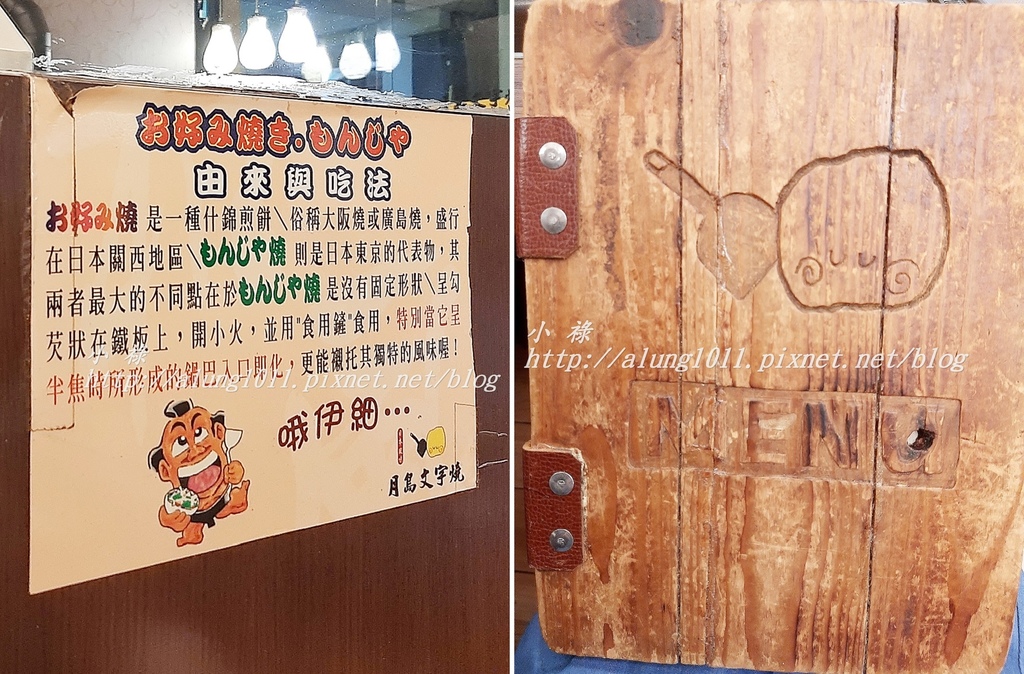 お好み燒き・もんじゃ
由來與吃法
お好み燒 是一種什錦煎餅\俗稱大阪燒或廣島燒，盛行
在日本關西地區\もんじゃ燒 則是日本東京的代表物，其
兩者最大的不同點在於もんじゃ燒 是沒有固定形狀\呈勾
芡狀在鐵板上，開小火，並用"食用鏟"食用，特別當它呈
半焦時所形成的鍋巴入口即化，更能襯托其獨特的風味喔！
哦伊細…
月島文字燒
小 祿
http://alung1011.pixnet.net/blog
MENU
小 祿
http://alung1011.pixnet.net/blog